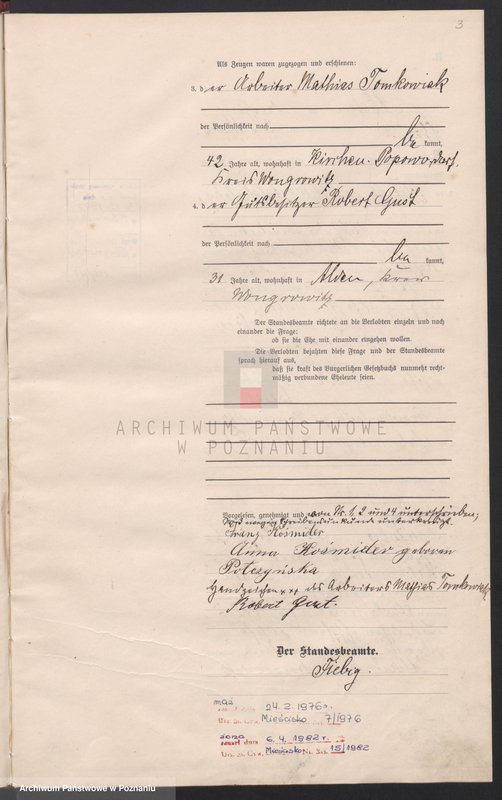 3
Als Zeugen waren zugezogen und erschienen:
3. der Arbeiter Mathias Tomkowiak
der Persönlichkeit nach
be kannt,
42 Jahre alt, wohnhaft in Kirchen-Popowo, dorf,
Kreis Wongrowitz
4. der Gutsbesitzer Robert Gust
der Persönlichkeit nach
be kannt,
31 Jahre alt, wohnhaft in Ahden, Kreis
Wongrowitz
Der Standesbeamte richtete an die Verlobten einzeln und nach
einander die Frage:
ob sie die Ehe mit einander eingehen wollen.
Die Verlobten bejahten diese Frage und der Standesbeamte
sprach hierauf aus,
daß sie kraft des Bürgerlichen Gesetzbuchs nunmehr recht-
mäßig verbundene Eheleute seien.
ARCHIWUM PAŃSTWOWE
W POZNANIU
Vorgelesen, genehmigt und von Nr. 1, 2 und 4 unterschrieben;
von wegen Schreibensunkunde unterkreuzt.
Franz Kośmider
Anna Kośmider geboren
Potczyńska
Handzeichen xxx des Arbeiters Mathias Tomkowiak
Robert Gust.
Der Standesbeamte.
Fiebig.
mąż
24. 2. 1976 r.
Mieścisko 7/1976
żona
zmarł dnia 6. 4. 1982 r.
Mieścisko Nr 15/1982
Archiwum Państwowe w Poznaniu